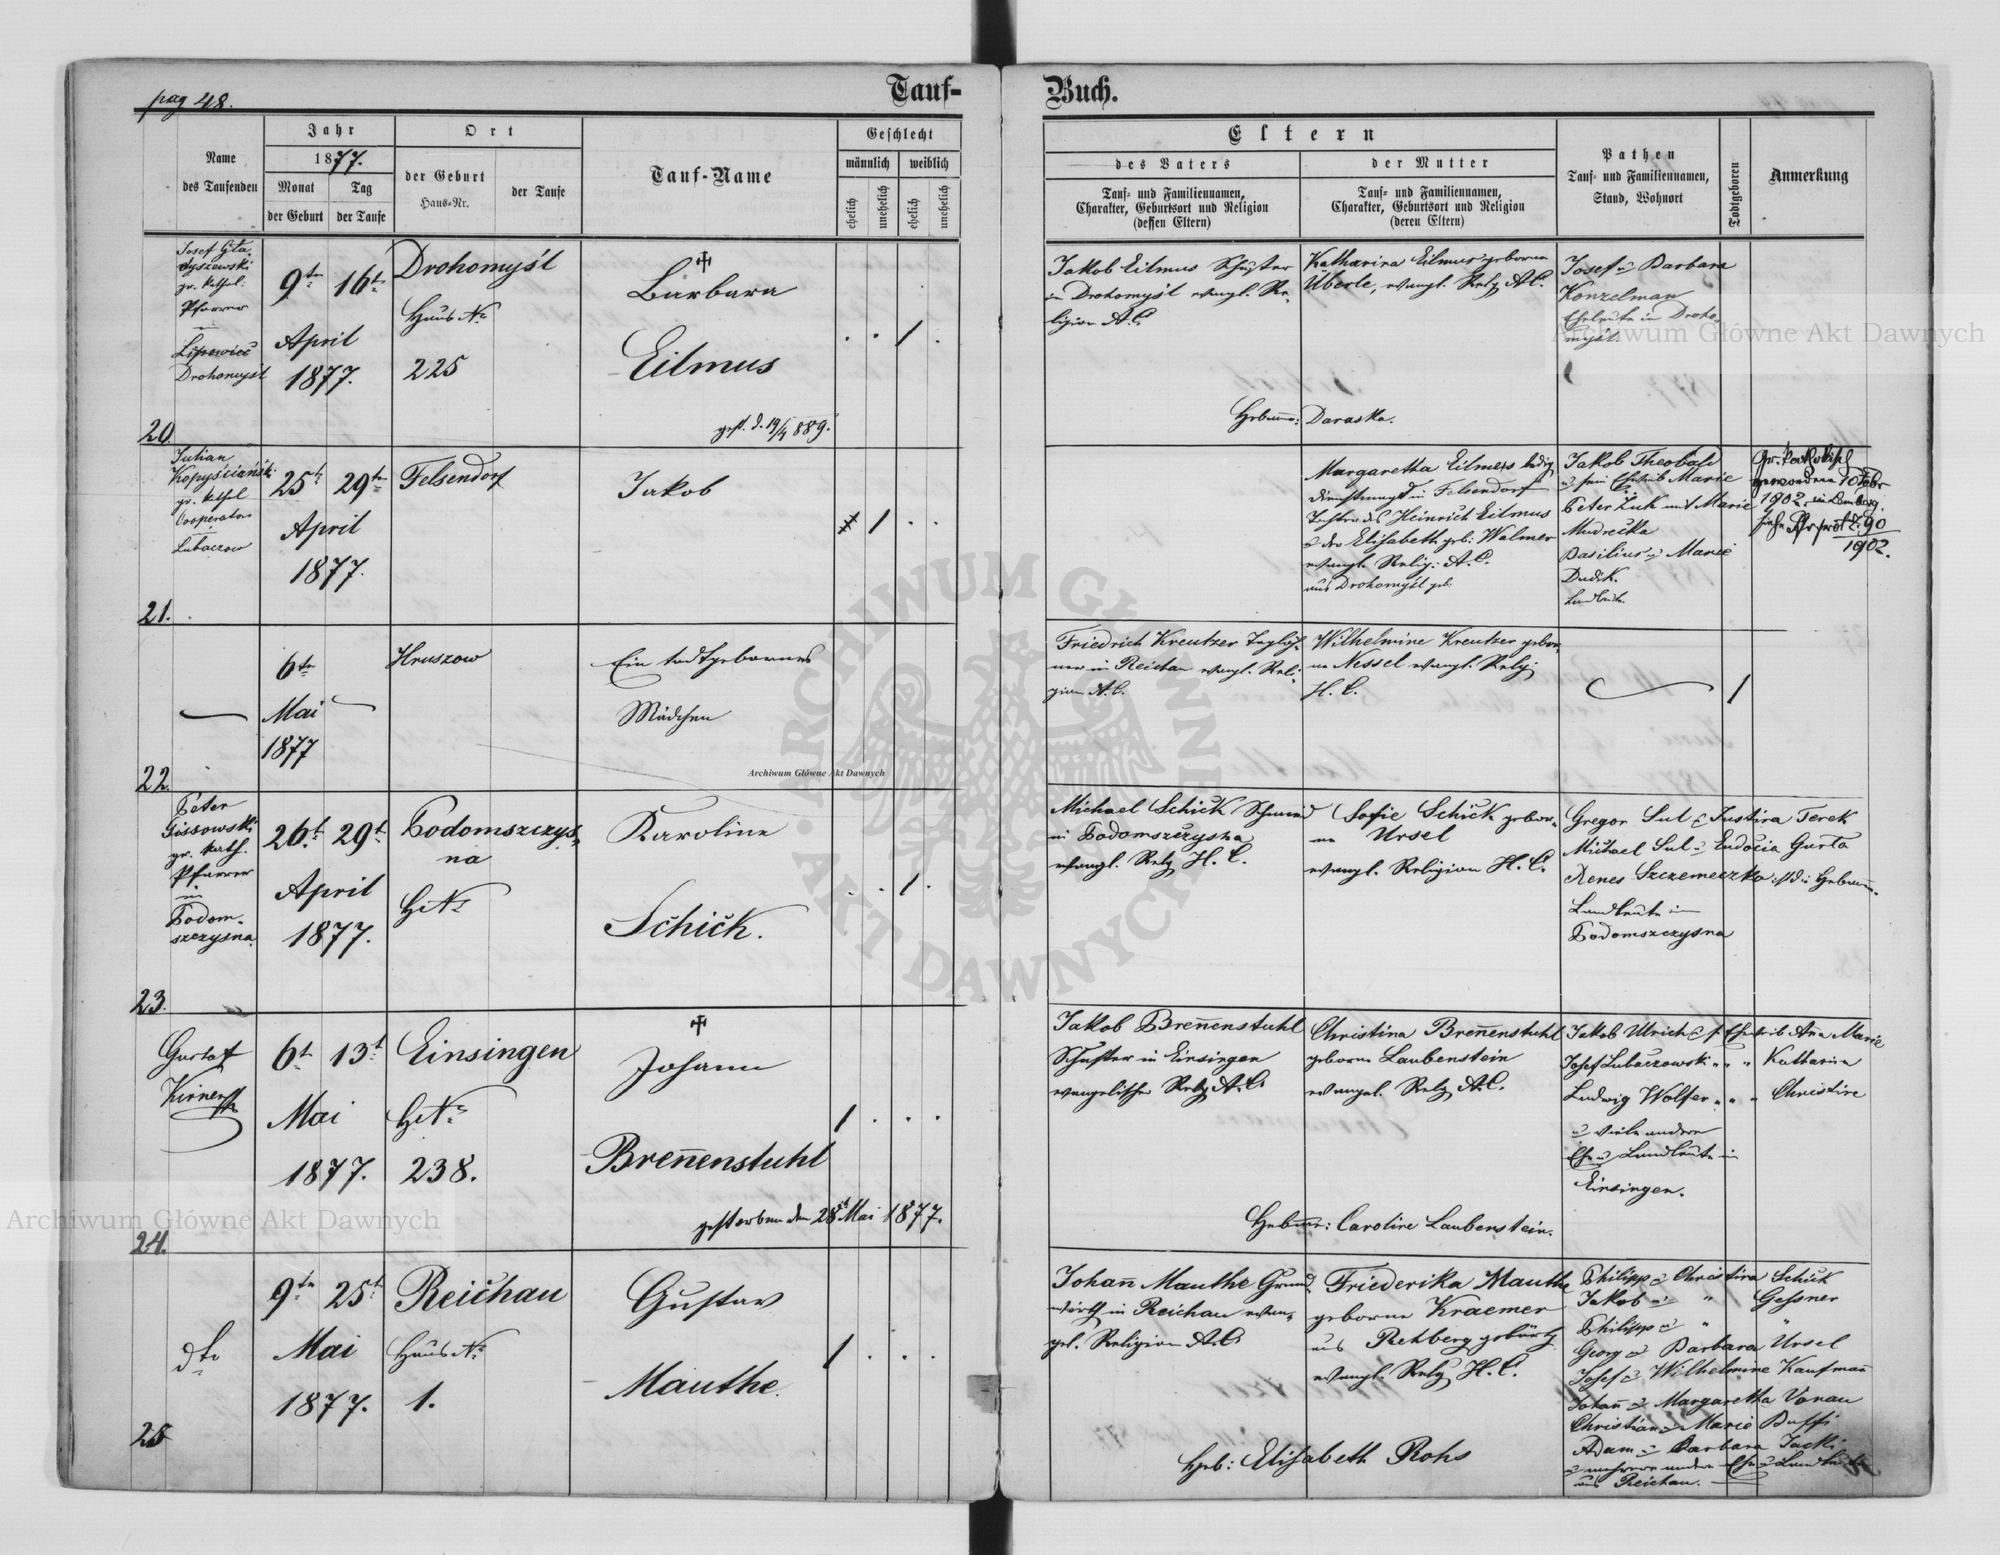 pag 48.
Tauf-
Buch.
Name
des Taufenden
Jahr
1877.
Monat
der Geburt
Tag
der Taufe
Ort
der Geburt
Haus-Nr.
der Taufe
Tauf-Name
Geschlecht
männlich
weiblich
ehelich
unehelich
ehelich
unehelich
Eltern
des Vaters
Tauf- und Familiennamen,
Charakter, Geburtsort und Religion
(dessen Eltern)
der Mutter
Tauf- und Familiennamen,
Charakter, Geburtsort und Religion
(deren Eltern)
Pathen
Tauf- und Familiennamen,
Stand, Wohnort
Todtgeboren
Anmerkung
20
Josef
gr. kathol.
Pfarrer
in
Lipowiec
Drohomyśl
9te 16te
April
1877.
Drohomyśl
Haus No
225
Barbara
Eilmus
gest. d. 19/4 889.
Jakob Eilmus Schuster
in Drohomyśl evangl. Re-
ligion A.C.
Katharina Eilmus geborne
Überle, evangl. Relg A.C.
Josef u Barbara
Konzelman
Eheleute in Droho-
myśl.
Hebamme: Daraska.
21.
Julian
Kopyściański
gr. kathol
Cooperator
in
Lubaczow
25t 29te
April
1877.
Felsendorf
Jakob
Margaretha Eilmes ledig
Dienstmagd in Felsendorf
Tochter des Heinrich Eilmus
u der Elisabeth geb: Walmer
evangl. Relig: A.C.
aus Drohomyśl geb.
Jakob Theobald
u sein Eheweib Marie
Peter Zuk mit Marie
Mudrecka
Basilius u Marie
Dudik.
Landleute.
Gr. katholisch
geworden 10 Febr
1902 in Lemberg.
siehe Pfr prot Z. 90
1902.
22.
6te
Mai
1877
Hruszow
Ein todtgebornes
Mädchen
Friedrich Kreutzer Taglöh-
ner in Reichau evangl. Reli-
gion A.C.
Wilhelmine Kreutzer gebor-
ne Nessel evangl. Relg:
H. C.
23.
Peter
Gissowski
gr. kath.
Pfarrer
in
Podom-
szczysna
26t 29t
April
1877.
Podomszczys-
na
H No
Karoline
Schick.
Michael Schick Schmied
in Podomszczysna
evangl. Relg H. C.
Sofie Schick gebor-
ne Ursel
evangl. Religion H. C.
Gregor Sul & Justina Terek
Michael Sul u Eudocia Gurta
Agnes Szczemeczko
Landleute in
Podomszczysna
24.
Gustaf
6t 13t
Mai
1877.
Einsingen
H No
238.
Johann
Breñenstuhl
gestorben den 28t Mai 1877.
Jakob Breñenstuhl
Schuster in Einsingen
evangelischer Relg A.C.
Christina Breñenstuhl
geborne Laubenstein
evangel. Relg A.C.
Jakob Ulrich & s. Eheweib Aña Marie
Josef Lubaczowski " " " Katharina
Ludwig Wolfer " " " Christine
u viele andere
Ehe u Landleute in
Einsingen.
Hebamme: Caroline Laubenstein.
25
dto
9te 25t
Mai
1877.
Reichau
Haus No
1.
Gustav
Mauthe
Johañ Mauthe Grund-
wirth in Reichau evan-
gel. Religion A.C.
Friederika Mauthe
geborne Kraemer
aus Rehberg gebürtig
evangl. Relg H. C.
Philipp u Christina Schick
Jakob u " Gessner
Philipp u " "
Georg u Barbara Ursel
Josef u Wilhelmine Kaufmañ
Johañ u Margaretha Vonau
Christian u Marie Buffi
Adam u Barbara Jacki
u mehrere andere Ehe u Landleute
aus Reichau.
Heb: Elisabeth Rohs
Archiwum Główne Akt Dawnych
Archiwum Główne Akt Dawnych
Archiwum Główne Akt Dawnych
ARCHIWUM GŁÓWNE AKT DAWNYCH